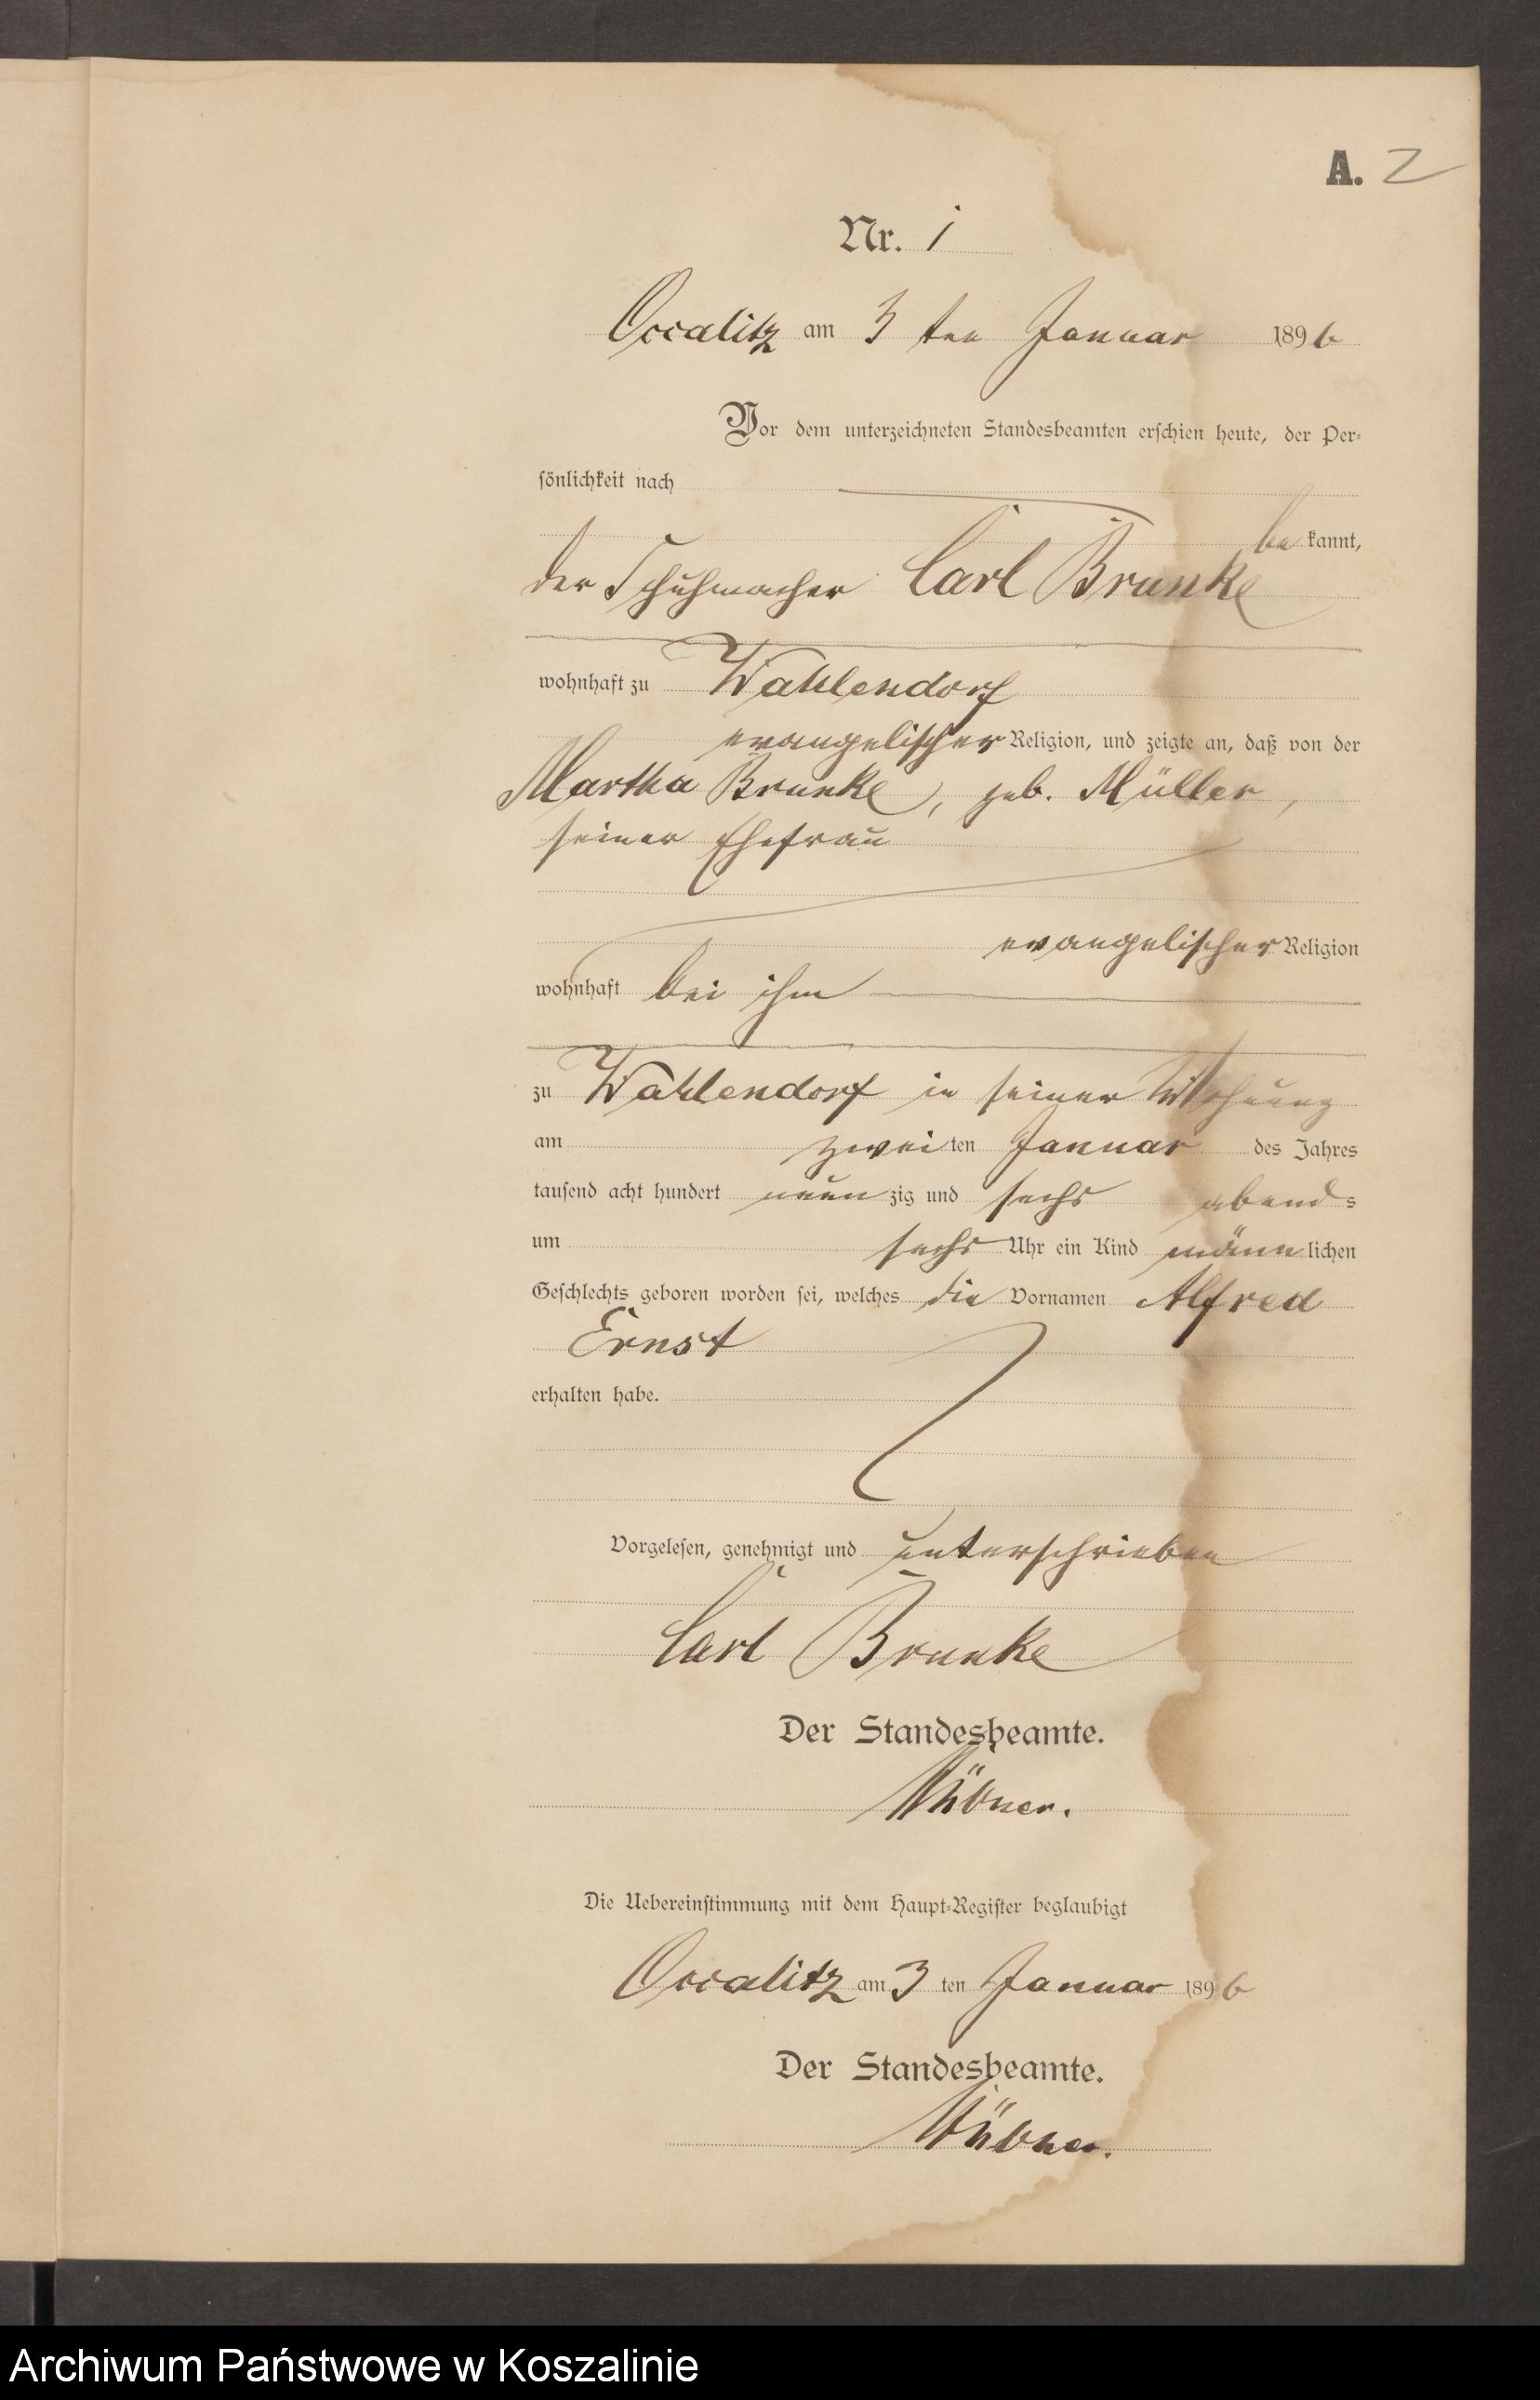 A. 2
Nr. 1
Occalitz am 3 ten Januar 1896
Vor dem unterzeichneten Standesbeamten erschien heute, der Per-
sönlichkeit nach
be kannt,
der Schuhmacher Carl Brunke
wohnhaft zu Wahlendorf
evangelischer Religion, und zeigte an, daß von der
Martha Brunke, geb. Müller,
seiner Ehefrau
evangelischer Religion
wohnhaft bei ihm
zu Wahlendorf in seiner Wohnung
am zwei ten Januar des Jahres
tausend acht hundert neun zig und sechs abend s
um sechs Uhr ein Kind männ lichen
Geschlechts geboren worden sei, welches die Vornamen Alfred
Ernst
erhalten habe.
Vorgelesen, genehmigt und unterschrieben
Carl Brunke
Der Standesbeamte.
Die Uebereinstimmung mit dem Haupt-Register beglaubigt
Occalitz am 3 ten Januar 1896
Der Standesbeamte.
Archiwum Państwowe w Koszalinie